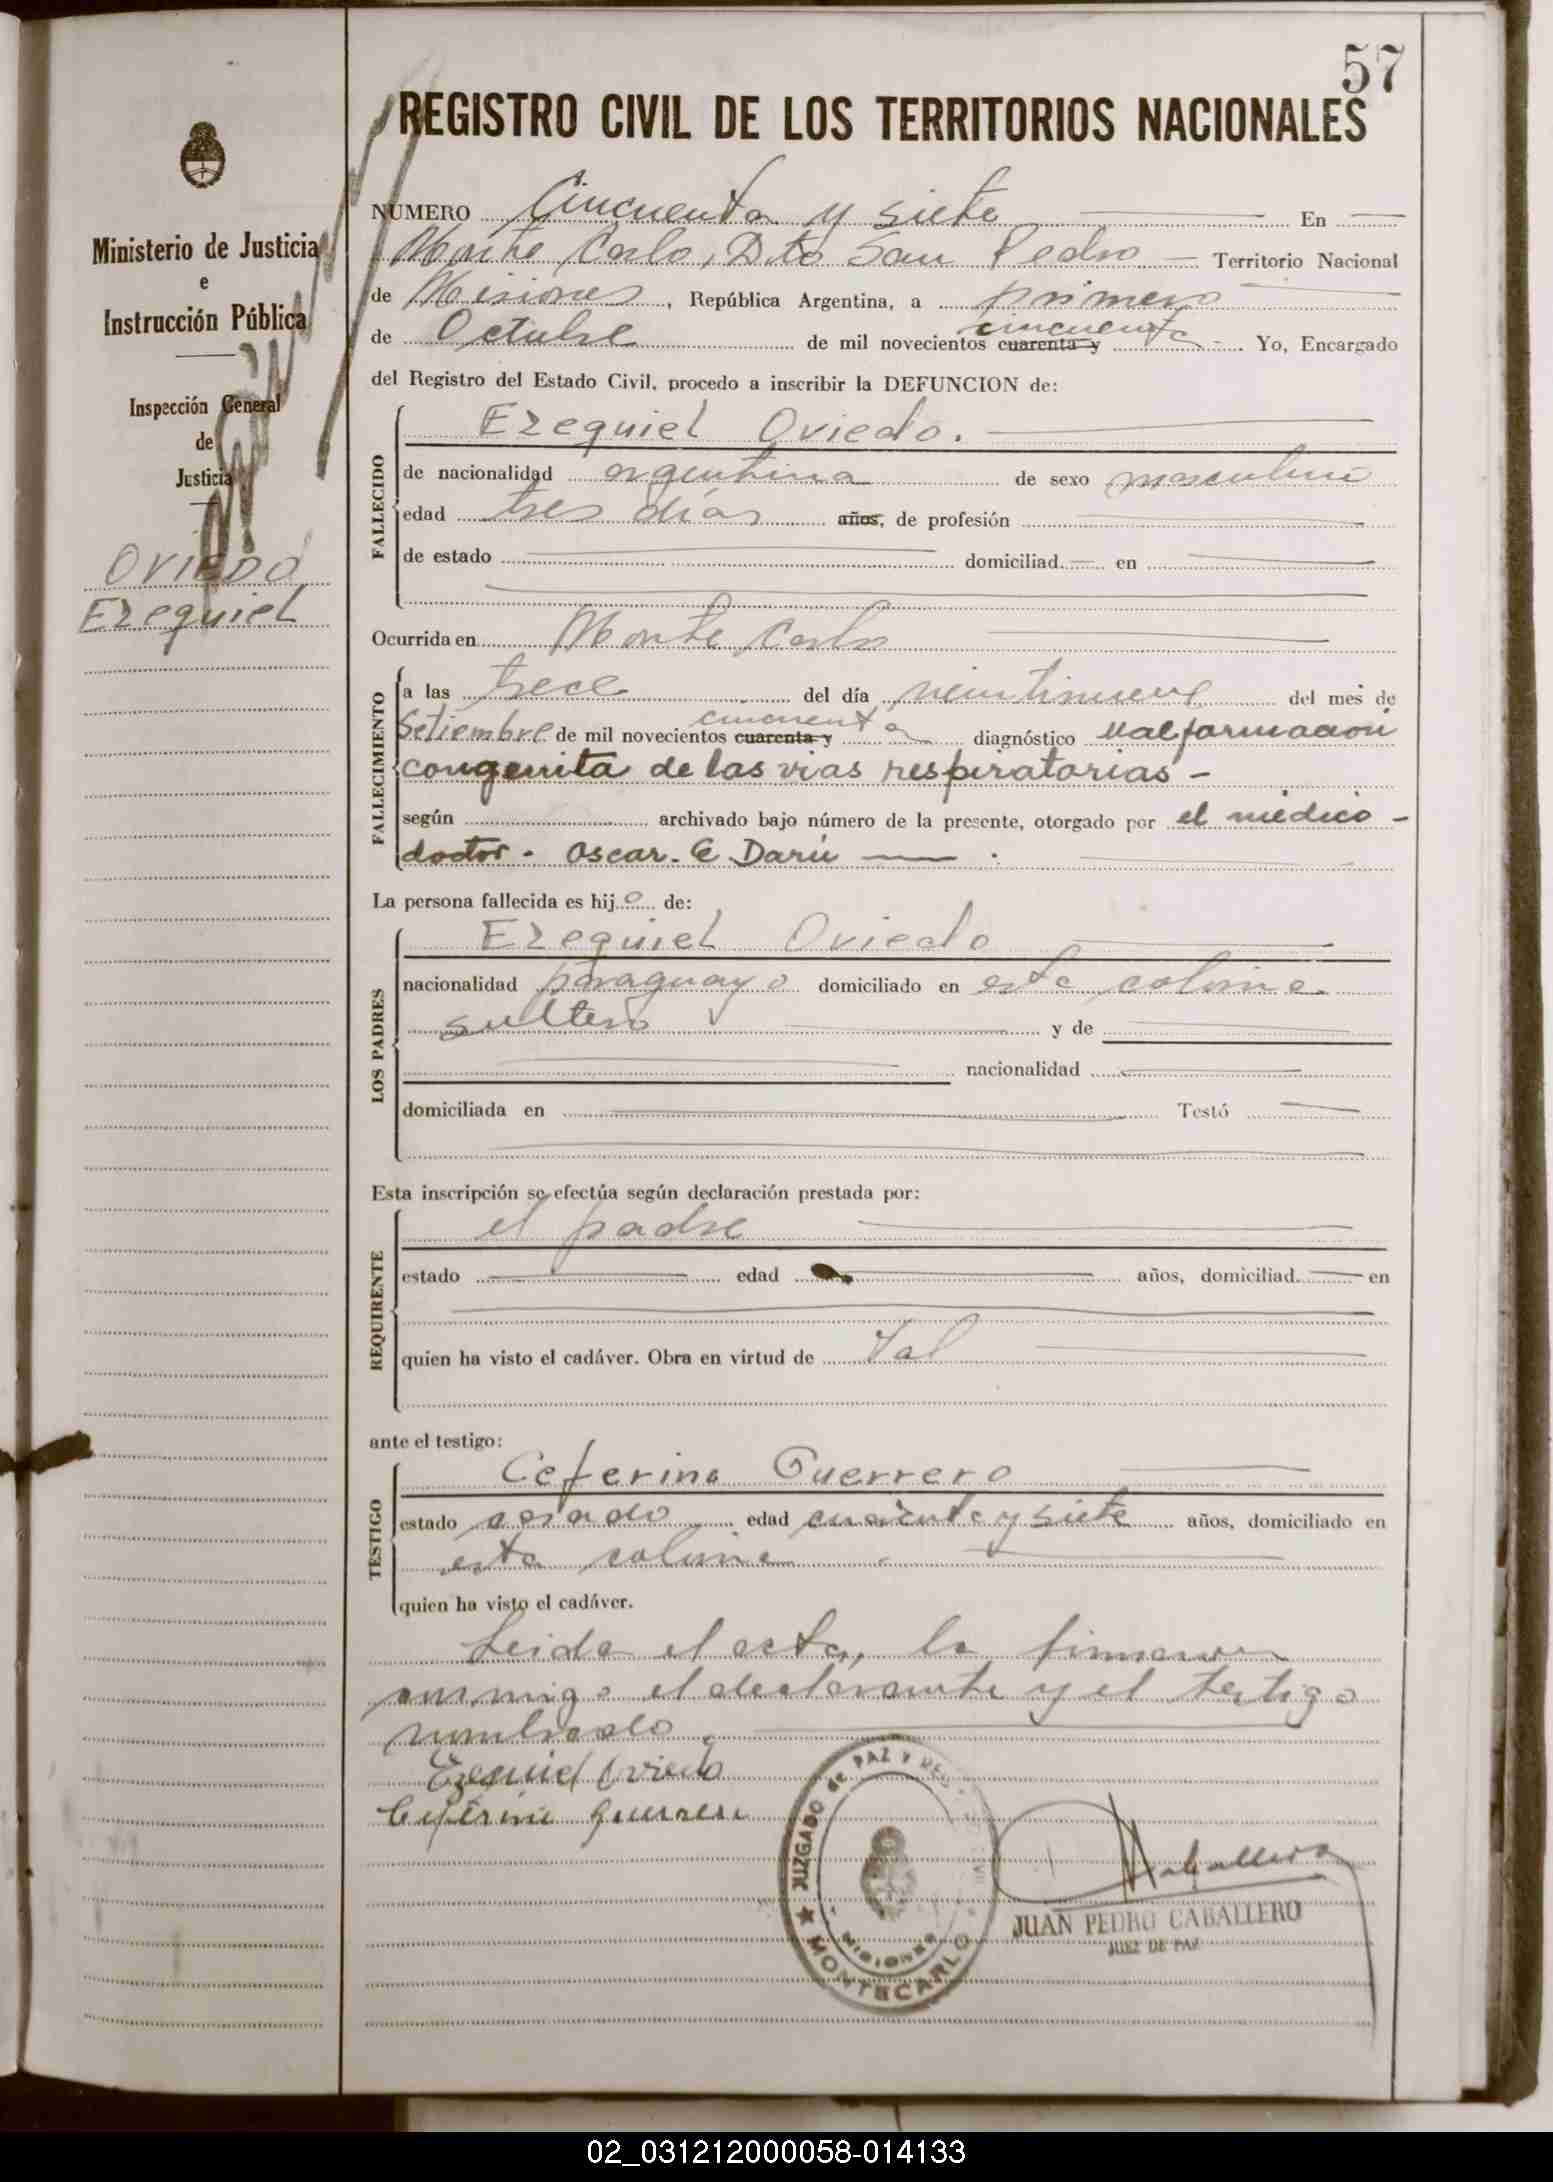 57
REGISTRO CIVIL DE LOS TERRITORIOS NACIONALES
Ministerio de Justicia
e
Instrucción Pública
Inspección General
de
Justicia
OVIEDO
Ezequiel
NUMERO Cincuenta y siete En
Monte Carlo, Dto San Pedro Territorio Nacional
de Misiones, República Argentina, a primero
de Octubre de mil novecientos cuarenta y cincuenta. Yo, Encargado
del Registro del Estado Civil, procedo a inscribir la DEFUNCION de:
FALLECIDO
Ezequiel Oviedo.
de nacionalidad argentina de sexo masculino
edad tres días años, de profesión
de estado domiciliad en
Ocurrida en Monte Carlo
FALLECIMIENTO
a las trece del día veintinueve del mes de
Setiembre de mil novecientos cuarenta y cincuenta diagnóstico malformacion
congenita de las vias respiratorias -
según archivado bajo número de la presente, otorgado por el médico -
doctor. Oscar. E Darú
La persona fallecida es hijo de:
LOS PADRES
Ezequiel Oviedo
nacionalidad paraguayo domiciliado en esta colonia
soltero y de
nacionalidad
domiciliada en Testó
Esta inscripción se efectúa según declaración prestada por:
REQUIRENTE
el padre
estado edad años, domiciliad en
quien ha visto el cadáver. Obra en virtud de Tal
ante el testigo:
TESTIGO
Ceferino Guerrero
estado casado edad cuarenta y siete años, domiciliado en
esta colonia
quien ha visto el cadáver.
Leida el acta, la firmaron
conmigo el declarante y el testigo
nombrado.
Ezequiel Oviedo
Ceferino Guerrero
JUZGADO de PAZ Y
MISIONES
MONTECARLO
Caballero
JUAN PEDRO CABALLERO
JUEZ DE PAZ
02_031212000058-014133